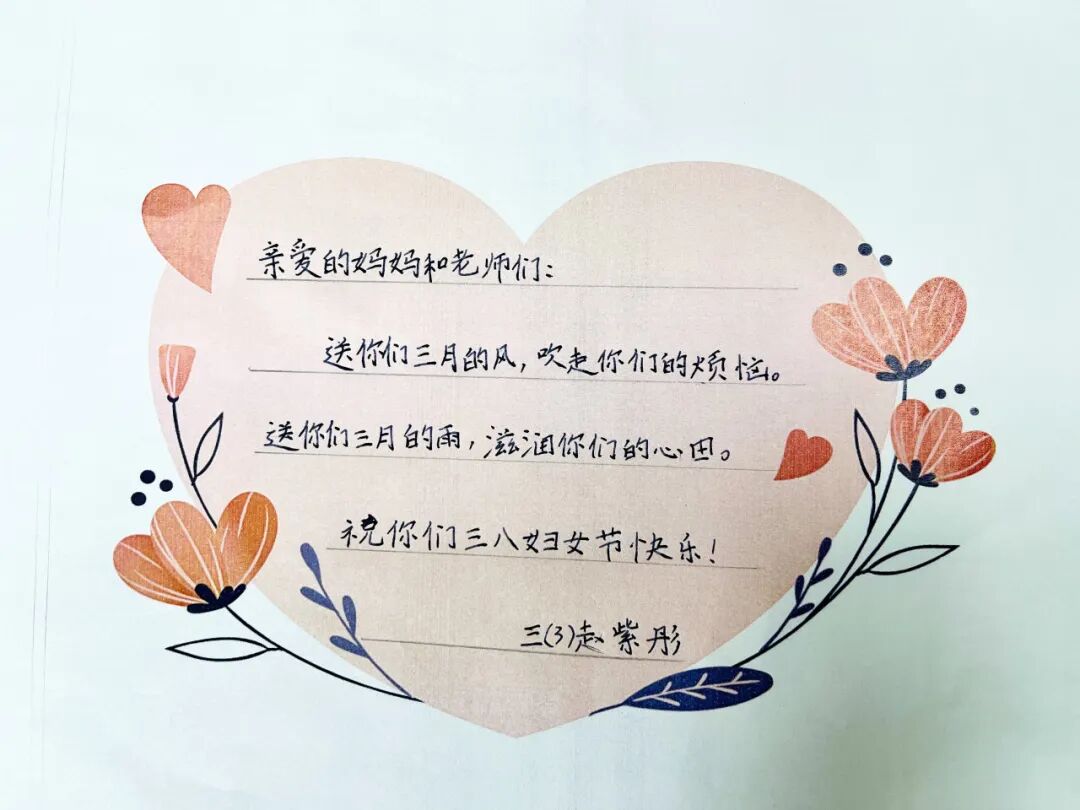 亲爱的妈妈和老师们：
送你们三月的风，吹走你们的烦恼。
送你们三月的雨，滋润你们的心田。
祝你们三八妇女节快乐！
三(3)赵紫彤